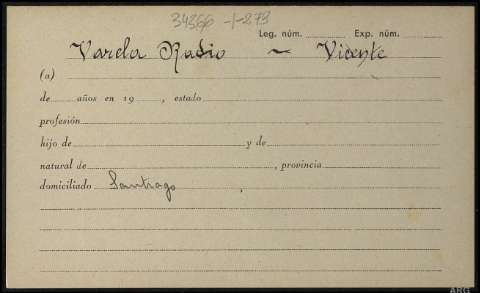 34366 -1-273
Leg. núm. Exp. núm.
Varela Radio ~ Vicente
(a)
de años en 19 , estado
profesión
hijo de y de
natural de , provincia
domiciliado Santiago ,
ARG